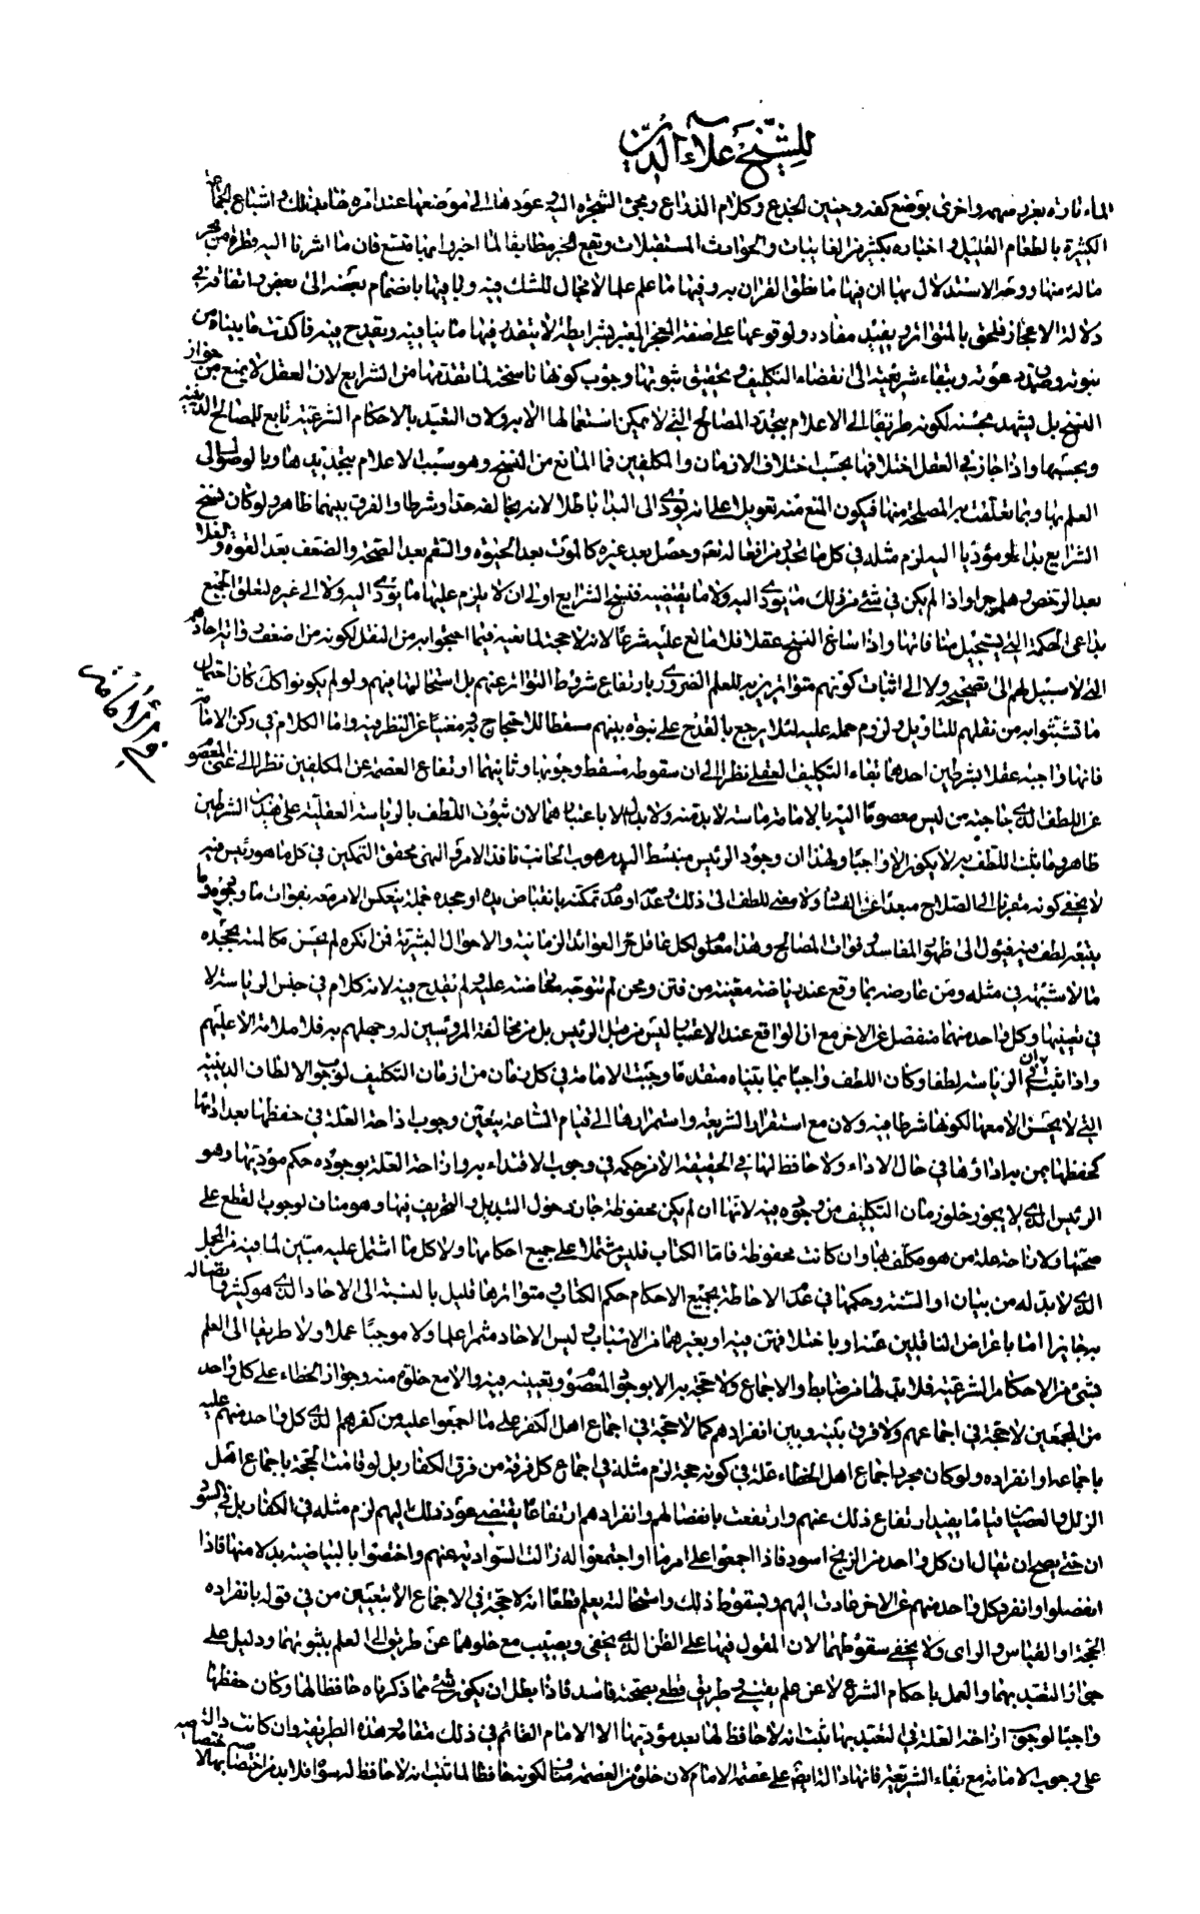 للشيخ علاء الدين
الماء تارة بغرز سهمه واخرى بوضع كفه وحنين الجذع وكلام الذراع ومجئ الشجرة اليه وعودها الى موضعها عند امره لها بذلك واشباع الجماعة
الكثيرة بالطعام القليل واخباره بكثير من الغايبات والحوادث المستقبلات وتقع المخبر مطابقا لما اخبر وامثالها تتسع فان ما اشرنا اليه قطرة من بحر
ماله منها ووجه الاستدلال بها ان فيها ما نطق القران به وفيها ما علم علما لا مجال للشك فيه وباقيها بانضمام بعضه الى بعض واتفاقه في
دلالة الاعجاز فلحق بالمتواتر ويفيد مفاده ولوقوعها على صفة المعجز المعتبر بشرايطه لا ينقدح فيها ما ينافيه ويقدح فيه فاكدت ما بيناه من
نبوته وصدق دعوته وبقاء شريعته الى انقضاء التكليف وتحقيق ثبوتها وجوب كونها ناسخة لما تقدمها من الشرايع لان العقل لا يمنع من جواز
النسخ بل يشهد بحسنه لكونه طريقا الى الاعلام بتجدد المصالح التي لا يمكن استعمالها الا به ولان التعبد بالاحكام الشرعية تابع للمصالح الدينية
وبحسبها واذا جاز في العقل اختلافها بحسب اختلاف الازمان والمكلفين فما المانع من النسخ وهو سبب الاعلام بتجديدها وبالوصول الى
العلم بها وبما تعلقت به المصلحة منها فيكون المنع منه تعويلا على انه يؤدي الى البداء باطلا لانه يخالفه حدا وشرطا والفرق بينهما ظاهر ولو كان نسخ
الشرايع بداء او مؤديا اليه لزم مثله في كل ما يتجدد من افعاله تعه وحصل بعد غيره كالموت بعد الحيوة والسقم بعد الصحة والضعف بعد القوة والغلا
بعد الرخص وهلم جرا واذا لم يكن في شئ من ذلك ما يؤدي اليه ولا ما يقتضيه فنسخ الشرايع اولى ان لا يلزم عليها ما يؤدي اليه ولا الى غيره لتعلق الجميع
بداعى الحكمة التي يستحيل منافاتها واذا ساغ النسخ عقلا فلا مانع عليه شرعا لانه لا حجة لما نعيه فيما احتجوا به من النقل لكونه من اضعف واتر احادهم
التي لا سبيل لهم الى تصحيحه ولا الى اثبات كونهم متواترين به للعلم الضروري بارتفاع شروط التواتر عنهم بل استحالتها فيهم ولو لم يكونوا كك كان احتمال
ما تشبثوا به من نقلهم للتاويل ولزوم حمله عليه لئلا يرجع بالقدح على نبوة نبيهم مسقطا للاحتجاج به مغنيا عن النظر فيه واما الكلام في ركن الامامة
في مسائل الامامة
فانها واجبة عقلا بشرطين احدهما بقاء التكليف العقلي نظرا الى ان سقوطه مسقط وجوبها وثانيهما ارتفاع العصمة عن المكلفين نظرا الى غنى المعصوم
عن اللطف الذي حاجة من ليس معصوما اليه بالامامة ماسة لا بد منه ولا بد اولا باعتبارهما لان ثبوت اللطف بالرياسة العقلية على هذين الشرطين
ظاهر وما ثبت اللطف به لا يكون الا واجبا ولهذا ان وجود الرئيس منبسط اليد مرهوب الجانب نافذ الامر والنهى محقق التمكين في كل ما هو رئيس فيه
لا يخفى كونه مقربا الى الصلاح مبعدا عن الفساد ولا معنى للطف الى ذلك وعدمه او عدم تمكنه بانقباض يده او جحده جملة ينعكس الامر معه بفوات ما وجوده
يتبعه لطف فيه فيؤل الى ظهور المفاسد وفوات المصالح وهذا معلوم لكل عاقل عرف العوائد الزمانية والاحوال البشرية فمن انكره لم يحسن مكالمته بجحده
ما لا شبهة في مثله ومن عارضه بما وقع عند رياسة معينة من فتن ومحن لم تتوجه معارضته عليه ولم تقدح فيه لانه كلام في جنس الرياسة لا
في تعيينها وكل واحد منهما منفصل عن الاخر مع ان الواقع عند الاعتبار ليس من قبل الرئيس بل من مخالفة المرؤسين له وجهلهم به فلا ملامة الا عليهم
واذا ثبت ان الرياسة لطفا وكان اللطف واجبا بما بيناه متقدما وجبت الامامة في كل زمان من ازمان التكليف لوجوب الالطاف الدينية
التي لا يحسن الا معها لكونها شرطا فيه ولان مع استقرار الشريعة واستمرارها الى قيام الساعة يتعين وجوب ازاحة العلة في حفظها بعد ادائها
كحفظها بمن بيده اداؤها في حال الاداء ولا حافظ لها في الحقيقة الا من حكمه في وجوب الاقتداء به وازاحة العلة بوجوده حكم مؤديها وهو
الرئيس الذي لا يجوز خلو زمان التكليف من وجوده فيه لانها ان لم يكن محفوظة جاز دخول التبديل والتحريف فيها وهو مناف لوجوب القطع على
صحتها ولازاحة علة من هو مكلف بها وان كانت محفوظة فاما الكتاب فليس مشتملا على جميع احكامها ولا كل ما اشتمل عليه مبين لما فيه من المجمل
الذي لا بد له من بيان او السنة وحكمها في عدم الاحاطة بجميع الاحكام حكم الكتاب ومتواترها قليل بالنسبة الى الاحاد الذي هو كثير
به جايز اما باعراض الناقلين عنه او باختلافهم فيه او بغيرهما من الاسباب وليس الاحاد مثمرا علما ولا موجبا عملا ولا طريقا الى العلم
بشئ من الاحكام الشرعية فلا بد لها من ضابط والاجماع ولا حجة به الا بوجود المعصوم وتعيينه فيه والا مع خلوه منه وجواز الخطاء على كل واحد
من المجمعين لا حجة في اجماعهم ولا فرق بينه وبين انفرادهم كما لا حجة في اجماع اهل الكفر على ما اجمعوا عليه من كفرهم الذي كل واحد منهم عليه
باجماعه وانفراده ولو كان مجرد اجماع اهل الخطاء علة في كونه حجة لزم مثله في اجماع كل فرقة من فرق الكفار بل لو قامت الحجة باجماع اهل
الزلل والعصيان قياما يفيد ارتفاع ذلك عنهم وارتفعت بانفصالهم وانفرادهم ارتفاعا يقتضى عود ذلك اليهم لزم مثله في الكفار بل في السودان
حتى يصح ان يقال ان كل واحد من الزنج اسود فاذا اجمعوا على امر ما او اجتمعوا له زالت السوادية عنهم واختصوا بالبياضية بدلا منها فاذا
انفصلوا وانفرد كل واحد منهم عن الاخر عادت اليهم وبسقوط ذلك واستحالته يعلم قطعا انه لا حجة في الاجماع الا بتعيين من في قوله بانفراده
الحجة او القياس والراى ولا يخفى سقوطهما لان المقول فيها على الظن الذي يخفى ويصيب مع خلوهما عن طريق الى العلم بثبوتهما ودليل على
جواز التعبد بهما والعمل باحكام الشرع لا عن علم يقينى وطريق قطعى بصحته فاسد فاذا بطل ان يكون شئ مما ذكرناه حافظا لها وكان حفظها
واجبا لوجوب ازاحة العلة في التعبد بها ثبت انه لا حافظ لها بعد مؤديها الا الامام القائم في ذلك مقامه وهذه الطريقة وان كانت دالة
على وجوب الامامة مع بقاء الشريعة فانها دالة ايضا على عصمة الامام لان خلوه من العصمة مناف لكونه حافظا لما ثبت انه لا حافظ له سواه فلا بد من اختصاصه بها لا